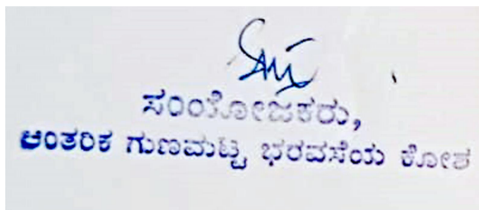 ಸಂಯೋಜಕರು,
ಆಂತರಿಕ ಗುಣಮಟ್ಟ ಭರವಸೆಯ ಕೋಶ